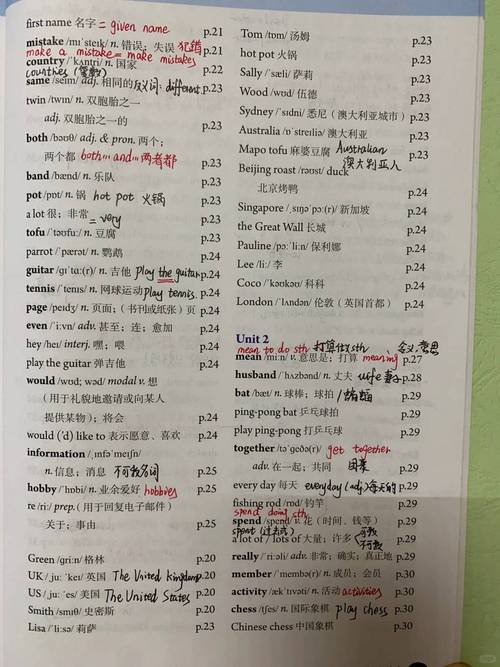 first name 名字 = given name p.21
mistake /mɪˈsteɪk/ n. 错误；失误 犯错 p.21
make a mistake = make mistakes
country /ˈkʌntri/ n. 国家 p.22
countries (复数)
same /seɪm/ adj. 相同的 反义词: different p.23
twin /twɪn/ n. 双胞胎之一
adj. 双胞胎之一的 p.23
both /bəʊθ/ adj. & pron. 两个；
两个都 both...and... 两者都 p.23
band /bænd/ n. 乐队 p.23
pot /pɒt/ n. 锅 hot pot 火锅 p.23
a lot 很；非常 = very p.23
tofu /ˈtəʊfuː/ n. 豆腐 p.23
parrot /ˈpærət/ n. 鹦鹉 p.24
guitar /ɡɪˈtɑː(r)/ n. 吉他 play the guitar p.24
tennis /ˈtenɪs/ n. 网球运动 play tennis p.24
page /peɪdʒ/ n. 页面；（书刊或纸张）页 p.24
even /ˈiːvn/ adv. 甚至；连；愈加 p.24
hey /heɪ/ interj. 嘿；喂 p.24
play the guitar 弹吉他 p.24
would /wʊd; wəd/ modal v. 想
（用于礼貌地邀请或向某人
提供某物）；将会 p.24
would ('d) like to 表示愿意、喜欢 p.24
information /ˌɪnfəˈmeɪʃn/
n. 信息；消息 不可数名词 p.25
hobby /ˈhɒbi/ n. 业余爱好 hobbies p.25
re /riː/ prep.（用于回复电子邮件）
关于；事由 p.25
Green /ɡriːn/ 格林 p.20
UK /ˌjuː ˈkeɪ/ 英国 The United kingdump.20
US /ˌjuː ˈes/ 美国 The United States p.20
Smith /smɪθ/ 史密斯 p.20
Lisa /ˈliːsə/ 莉萨 p.23
Tom /tɒm/ 汤姆 p.23
hot pot 火锅 p.23
Sally /ˈsæli/ 萨莉 p.23
Wood /wʊd/ 伍德 p.23
Sydney /ˈsɪdni/ 悉尼（澳大利亚城市）p.23
Australia /ɒˈstreɪliə/ 澳大利亚 p.23
Mapo tofu 麻婆豆腐 Australian p.23
澳大利亚人
Beijing roast /rəʊst/ duck
北京烤鸭 p.24
Singapore /ˌsɪŋəˈpɔː(r)/ 新加坡 p.24
the Great Wall 长城 p.24
Pauline /pɔːˈliːn/ 保利娜 p.24
Lee /liː/ 李 p.24
Coco /ˈkəʊkəʊ/ 科科 p.24
London /ˈlʌndən/ 伦敦（英国首都）p.24
Unit 2
mean to do sth 打算做sth 意思
mean /miːn/ v. 意思是；打算 meaning p.27
husband /ˈhʌzbənd/ n. 丈夫 wife 妻子 p.28
bat /bæt/ n. 球棒；球拍 蝙蝠 p.29
ping-pong bat 乒乓球拍 p.29
play ping-pong 打乒乓球 p.29
together /təˈɡeðə(r)/ get together
adv. 在一起；共同 p.29
every day 每天 everyday (adj) 每天的 p.29
fishing rod /rɒd/ 钓竿 p.29
spend doing sth
spend /spend/ v. 花（时间、钱等） p.29
spent (过去式) 可数
a lot of / lots of 大量；许多 不可数 p.29
really /ˈriːəli/ adv. 非常；确实；真正地 p.29
member /ˈmembə(r)/ n. 成员；会员 p.30
activity /ækˈtɪvəti/ n. 活动 activities p.30
chess /tʃes/ n. 国际象棋 play chess p.30
Chinese chess 中国象棋 p.30